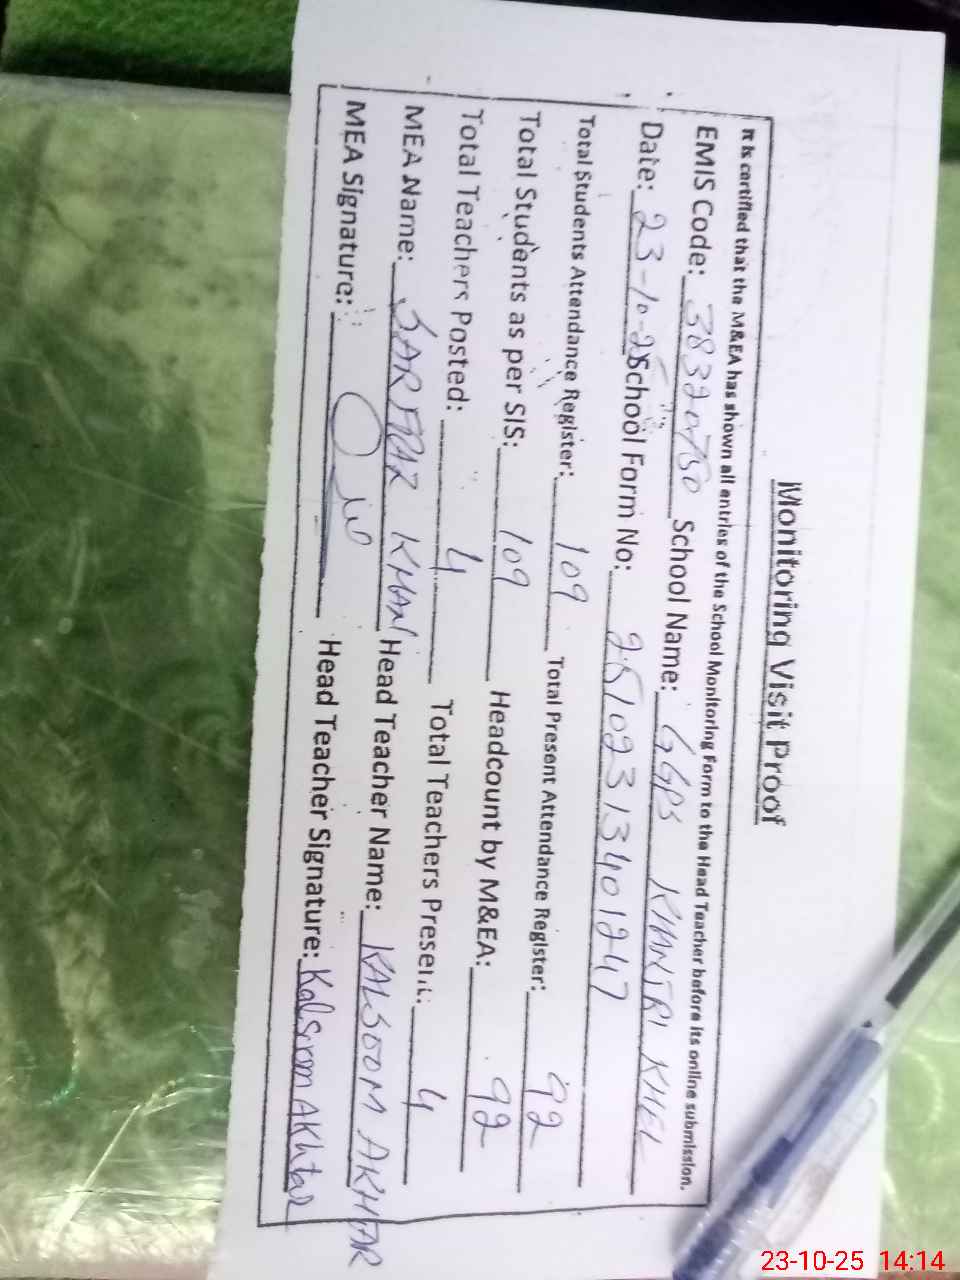 Monitoring Visit Proof
It is certified that the M&EA has shown all entries of the School Monitoring Form to the Head Teacher before its online submission.
EMIS Code: 38320750 School Name: GGPS KHANJRI KHEL
Date: 23-10-25 School Form No: 25102313401247
Total Students Attendance Register: 109 Total Present Attendance Register: 92
Total Students as per SIS: 109 Headcount by M&EA: 92
Total Teachers Posted: 4 Total Teachers Present: 4
MEA Name: SARFRAZ KHAN Head Teacher Name: KALSOOM AKHTAR
MEA Signature: Head Teacher Signature: Kalsoom Akhtar
23-10-25 14:14